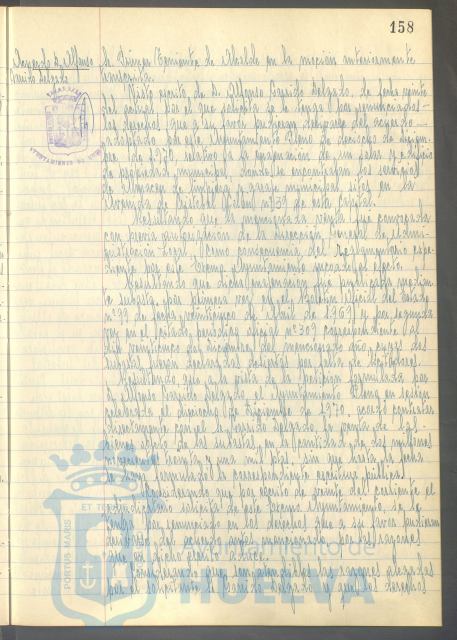 158
Acuerdo D. Alfonso
Garrido Delgado
la Primer Teniente de Alcalde en la moción anteriormente
transcrita.
Visto escrito de D. Alfonso Garrido Delgado, de fecha veinte
del actual, por el que solicita se le tenga por renunciado
los derechos que a su favor pudieran derivarse del acuerdo
adoptado por este Ayuntamiento Pleno de dieciocho de Diciem-
bre de 1970, relativo a la enajenación de un solar y edificio
de propiedad municipal, donde se encuentran los servicios
de Almacén de limpieza y garaje municipal sitos en la
Avenida de Cristóbal Colón nº 39 de esta capital.
Resultando que la mencionada venta fue comenzada
con previa autorización de la Dirección General de Admi-
nistración Local, como consecuencia del reglamentario expe-
diente por este Excmo. Ayuntamiento incoado al efecto.
Resultando que dicha enajenación fue anunciada median-
te subasta, por primera vez en el Boletín Oficial del Estado
nº 99 de fecha veinticinco de Abril de 1969 y por segunda
vez en el citado periódico oficial nº 309 correspondiente al
día veinticinco de Diciembre del mencionado año, cuyas dos
subastas fueron declaradas desiertas por falta de licitadores.
Resultando, que a la vista de la petición formulada por
D. Alfonso Garrido Delgado, el Ayuntamiento Pleno en sesión
celebrada el dieciocho de Diciembre de 1970, acordó contratar
directamente con el Sr. Garrido Delgado, la venta de los
bienes objeto de las subastas, en la cantidad de dos millones
novecientas treinta y una mil ptas, sin que hasta la fecha
se haya formulado la correspondiente escritura pública.
Considerando que por escrito de veinte del corriente el
adjudicatario solicita de este Excmo. Ayuntamiento, se le
tenga por renunciado en los derechos que a su favor pudieran
derivarse del acuerdo antes mencionado, por las razones
que en dicho escrito aduce.
Considerando que son atendibles las razones alegadas
por el solicitante Sr. Garrido Delgado y que los derechos
PORTUS MARIS
ET TE
Ayuntamiento de
HUELVA